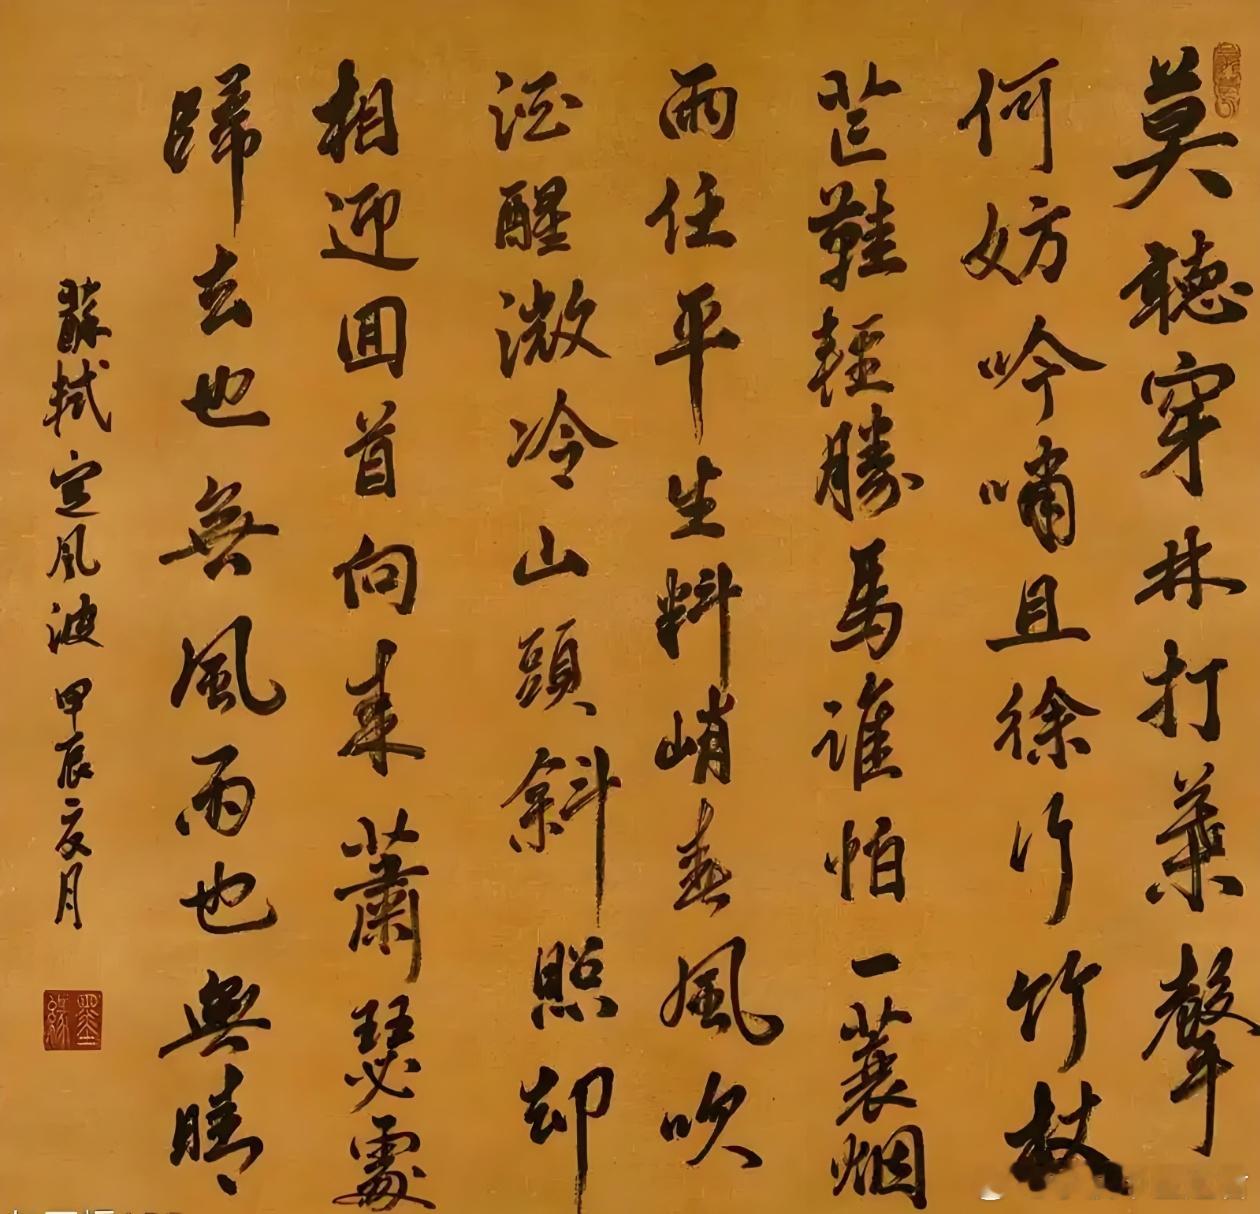 莫聽穿林打葉聲
何妨吟嘯且徐行竹杖
芒鞋輕勝馬誰怕一蓑烟
雨任平生料峭春風吹
酒醒微冷山頭斜照却
相迎回首向来蕭瑟處
歸去也無風雨也無晴
蘇軾定風波 甲辰夏月
墨緣